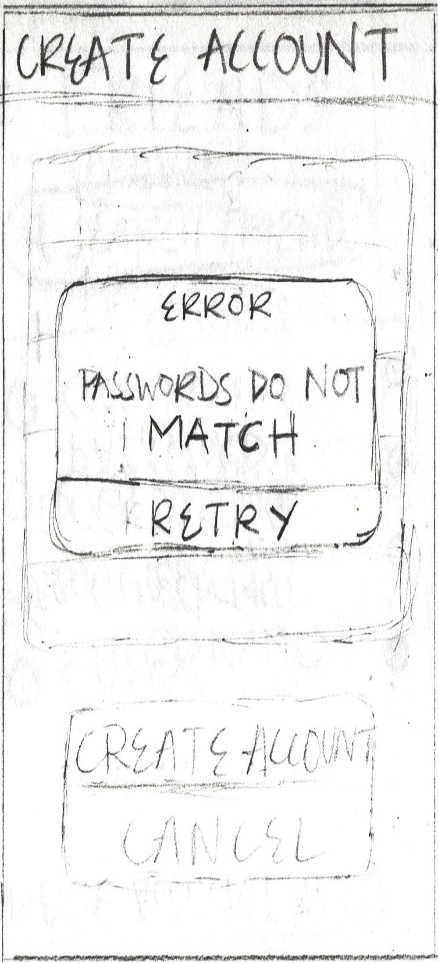 CREATE ACCOUNT
ERROR
PASSWORDS DO NOT
MATCH
RETRY
CREATE ACCOUNT
CANCEL